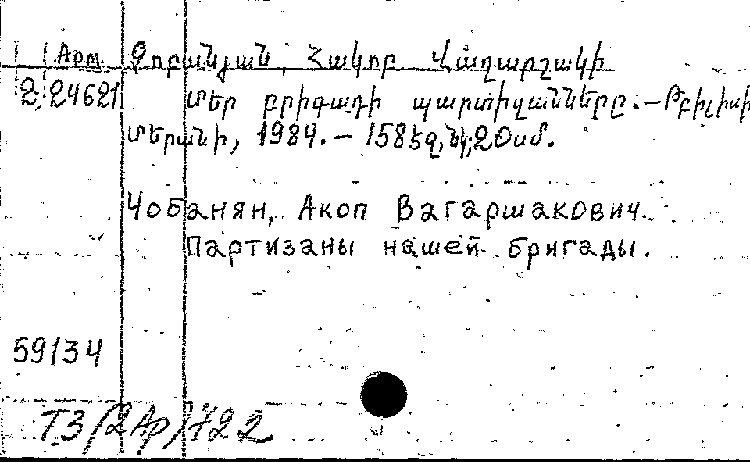 Арм Չոբանյան, Հակոբ Վաղարշակի
2.24621 Մեր բրիգադի պարտիզանները. – Թբիլիսի
Մերանի, 1984. – 158 էջ, նկ; 20 սմ.
Чобанян, Акоп Вагаршакович.
Партизаны нашей бригады.
59134
Т3(2Ар)722